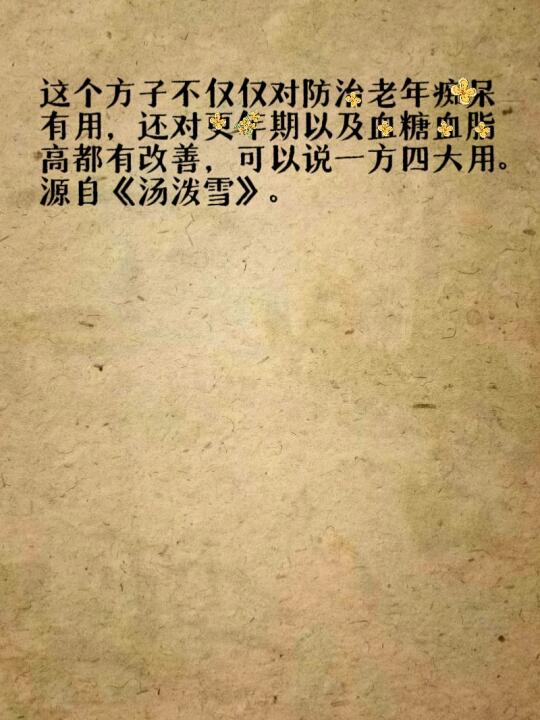 这个方子不仅仅对防治老年痴呆
有用，还对更年期以及血糖血脂
高都有改善，可以说一方四大用。
源自《汤泼雪》。